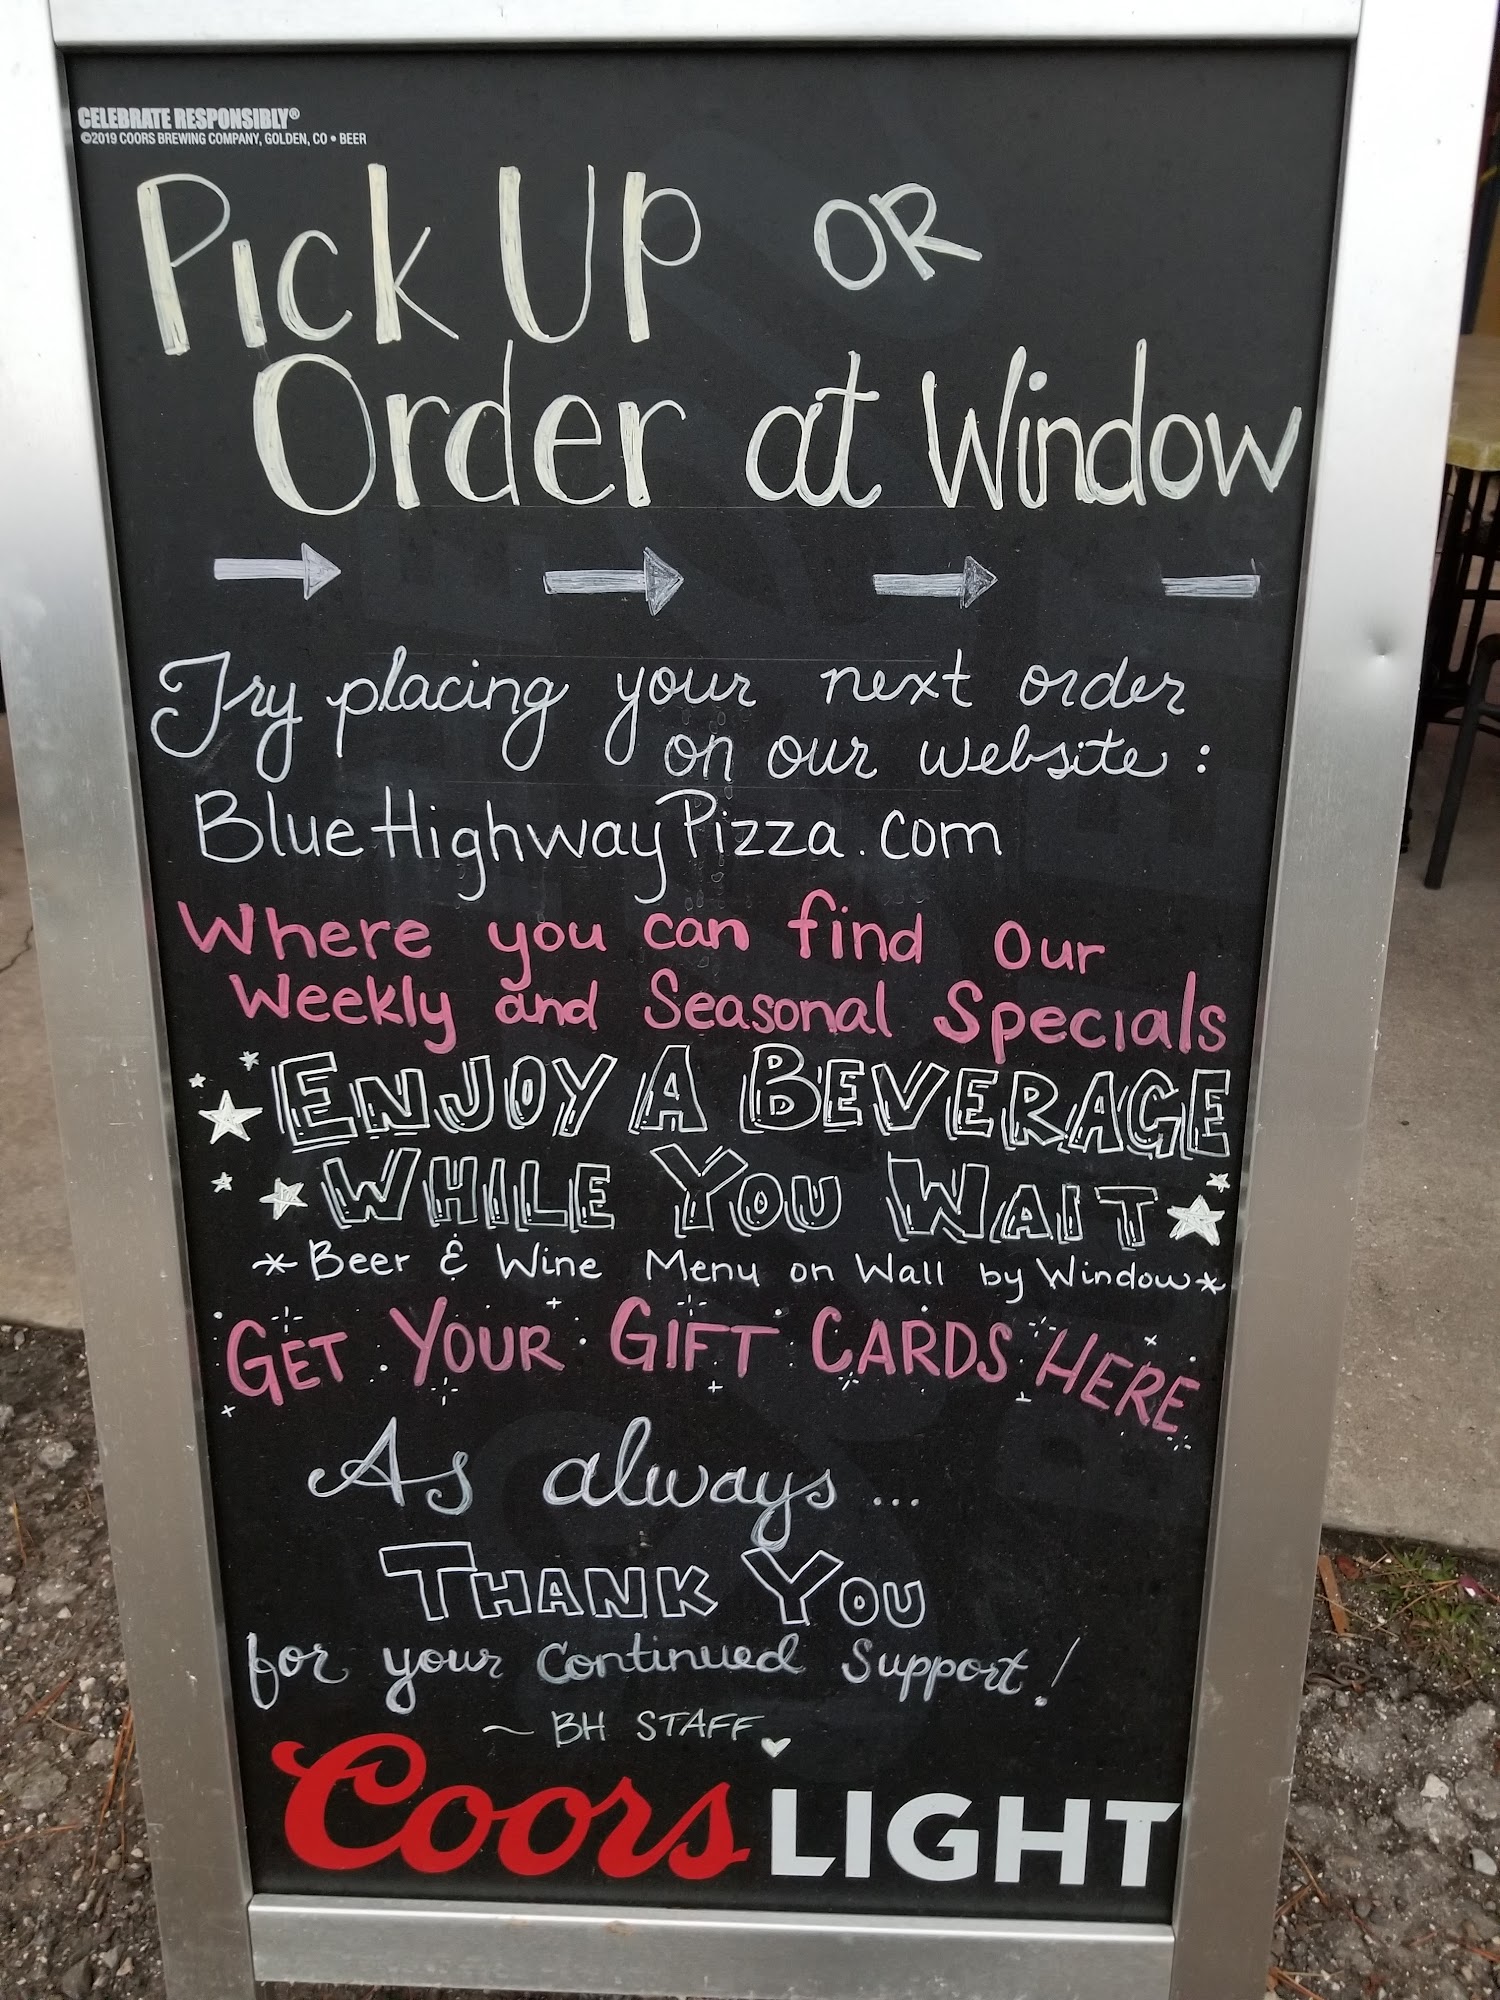 CELEBRATE RESPONSIBLY®
©2019 COORS BREWING COMPANY, GOLDEN, CO • BEER
Pick Up OR
Order at Window
Try placing your next order
on our website:
BlueHighwayPizza.com
Where you can find Our
Weekly and Seasonal Specials
ENJOY A BEVERAGE
WHILE YOU WAIT
*Beer & Wine Menu on Wall by Window*
GET YOUR GIFT CARDS HERE
As always...
THANK YOU
for your Continued Support!
~ BH STAFF
Coors LIGHT